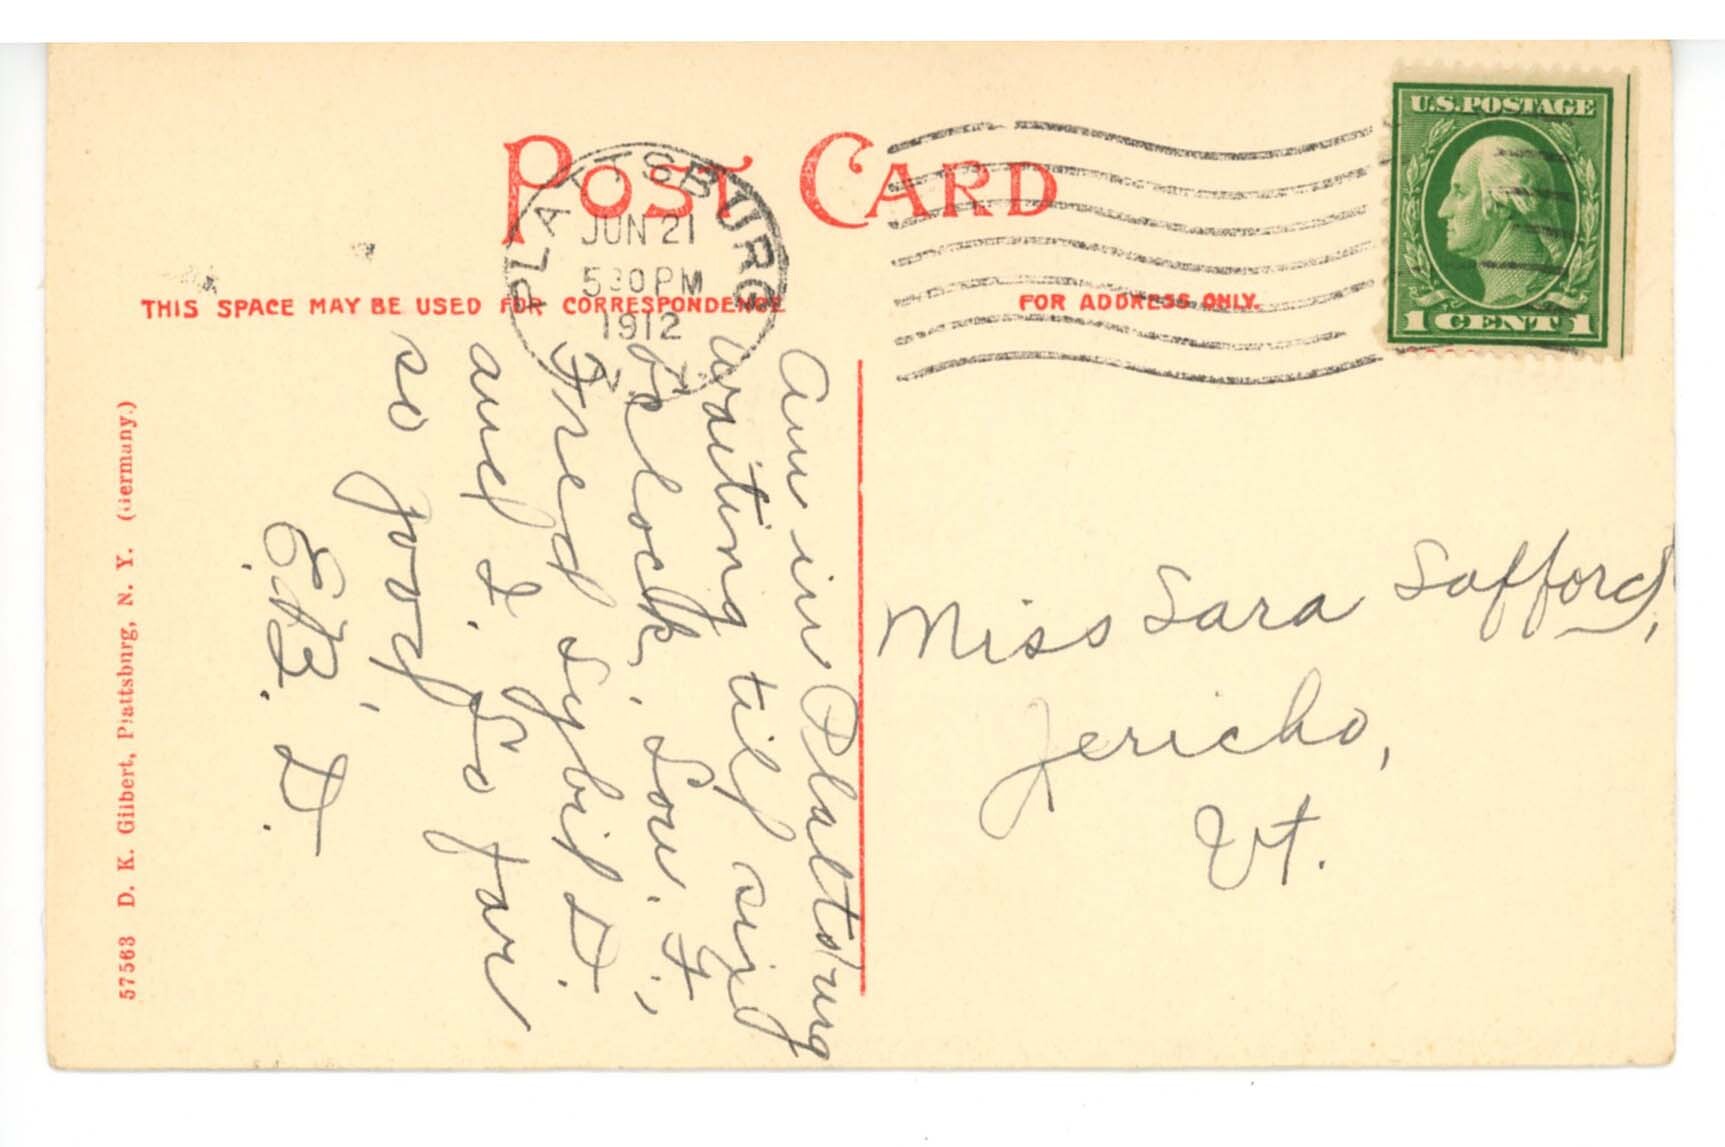 POST CARD
PLATTSBURG
JUN 21
5 30 PM
1912
N. Y.
U.S. POSTAGE
1 CENT 1
THIS SPACE MAY BE USED FOR CORRESPONDENCE
FOR ADDRESS ONLY.
Am in Plattsburg
waiting til six
o'clock, Lou. F.,
Fred Sybil D.
and I. So far
so good,
E. B. D.
Miss Sara Safford,
Jericho,
Vt.
57563 D. K. Gilbert, Plattsburg, N. Y. (Germany.)